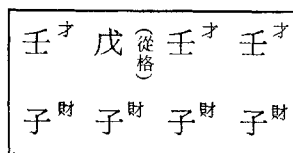 壬才 戊(從格) 壬才 壬才
子財 子財 子財 子財